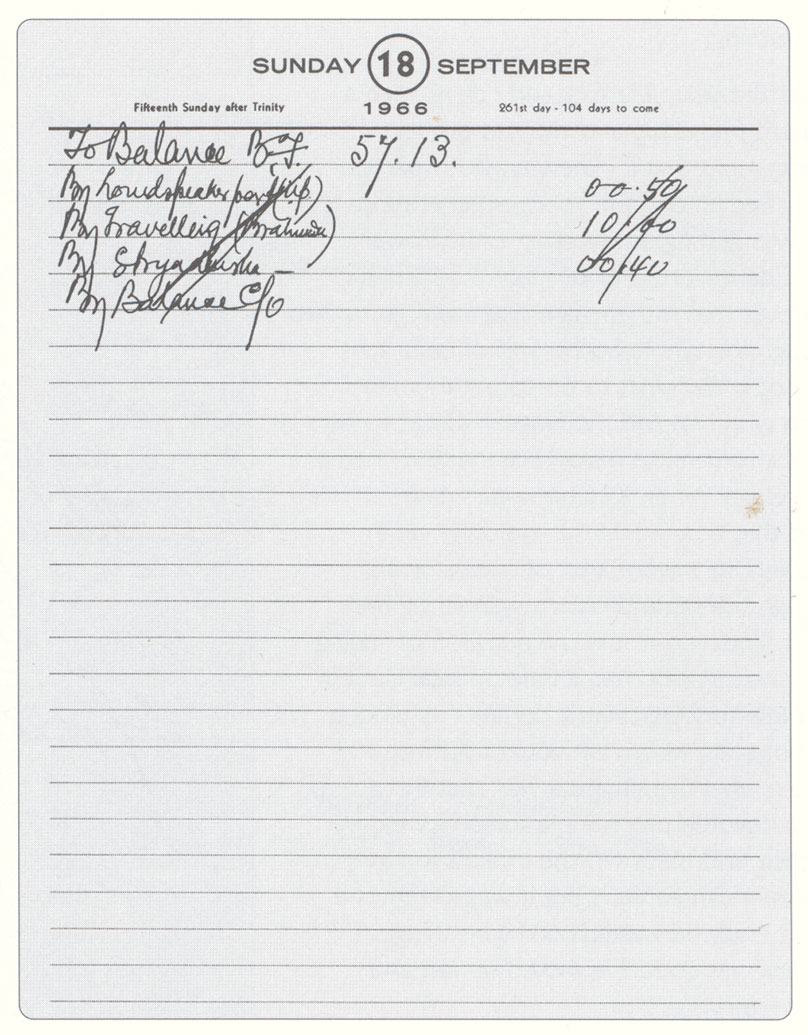 SUNDAY 18 SEPTEMBER
Fifteenth Sunday after Trinity 1966 261st day - 104 days to come
To Balance B.F. 57.13.
By Loudspeaker 00.50
By Travelling 10.00
By 00.40
By Balance C/o